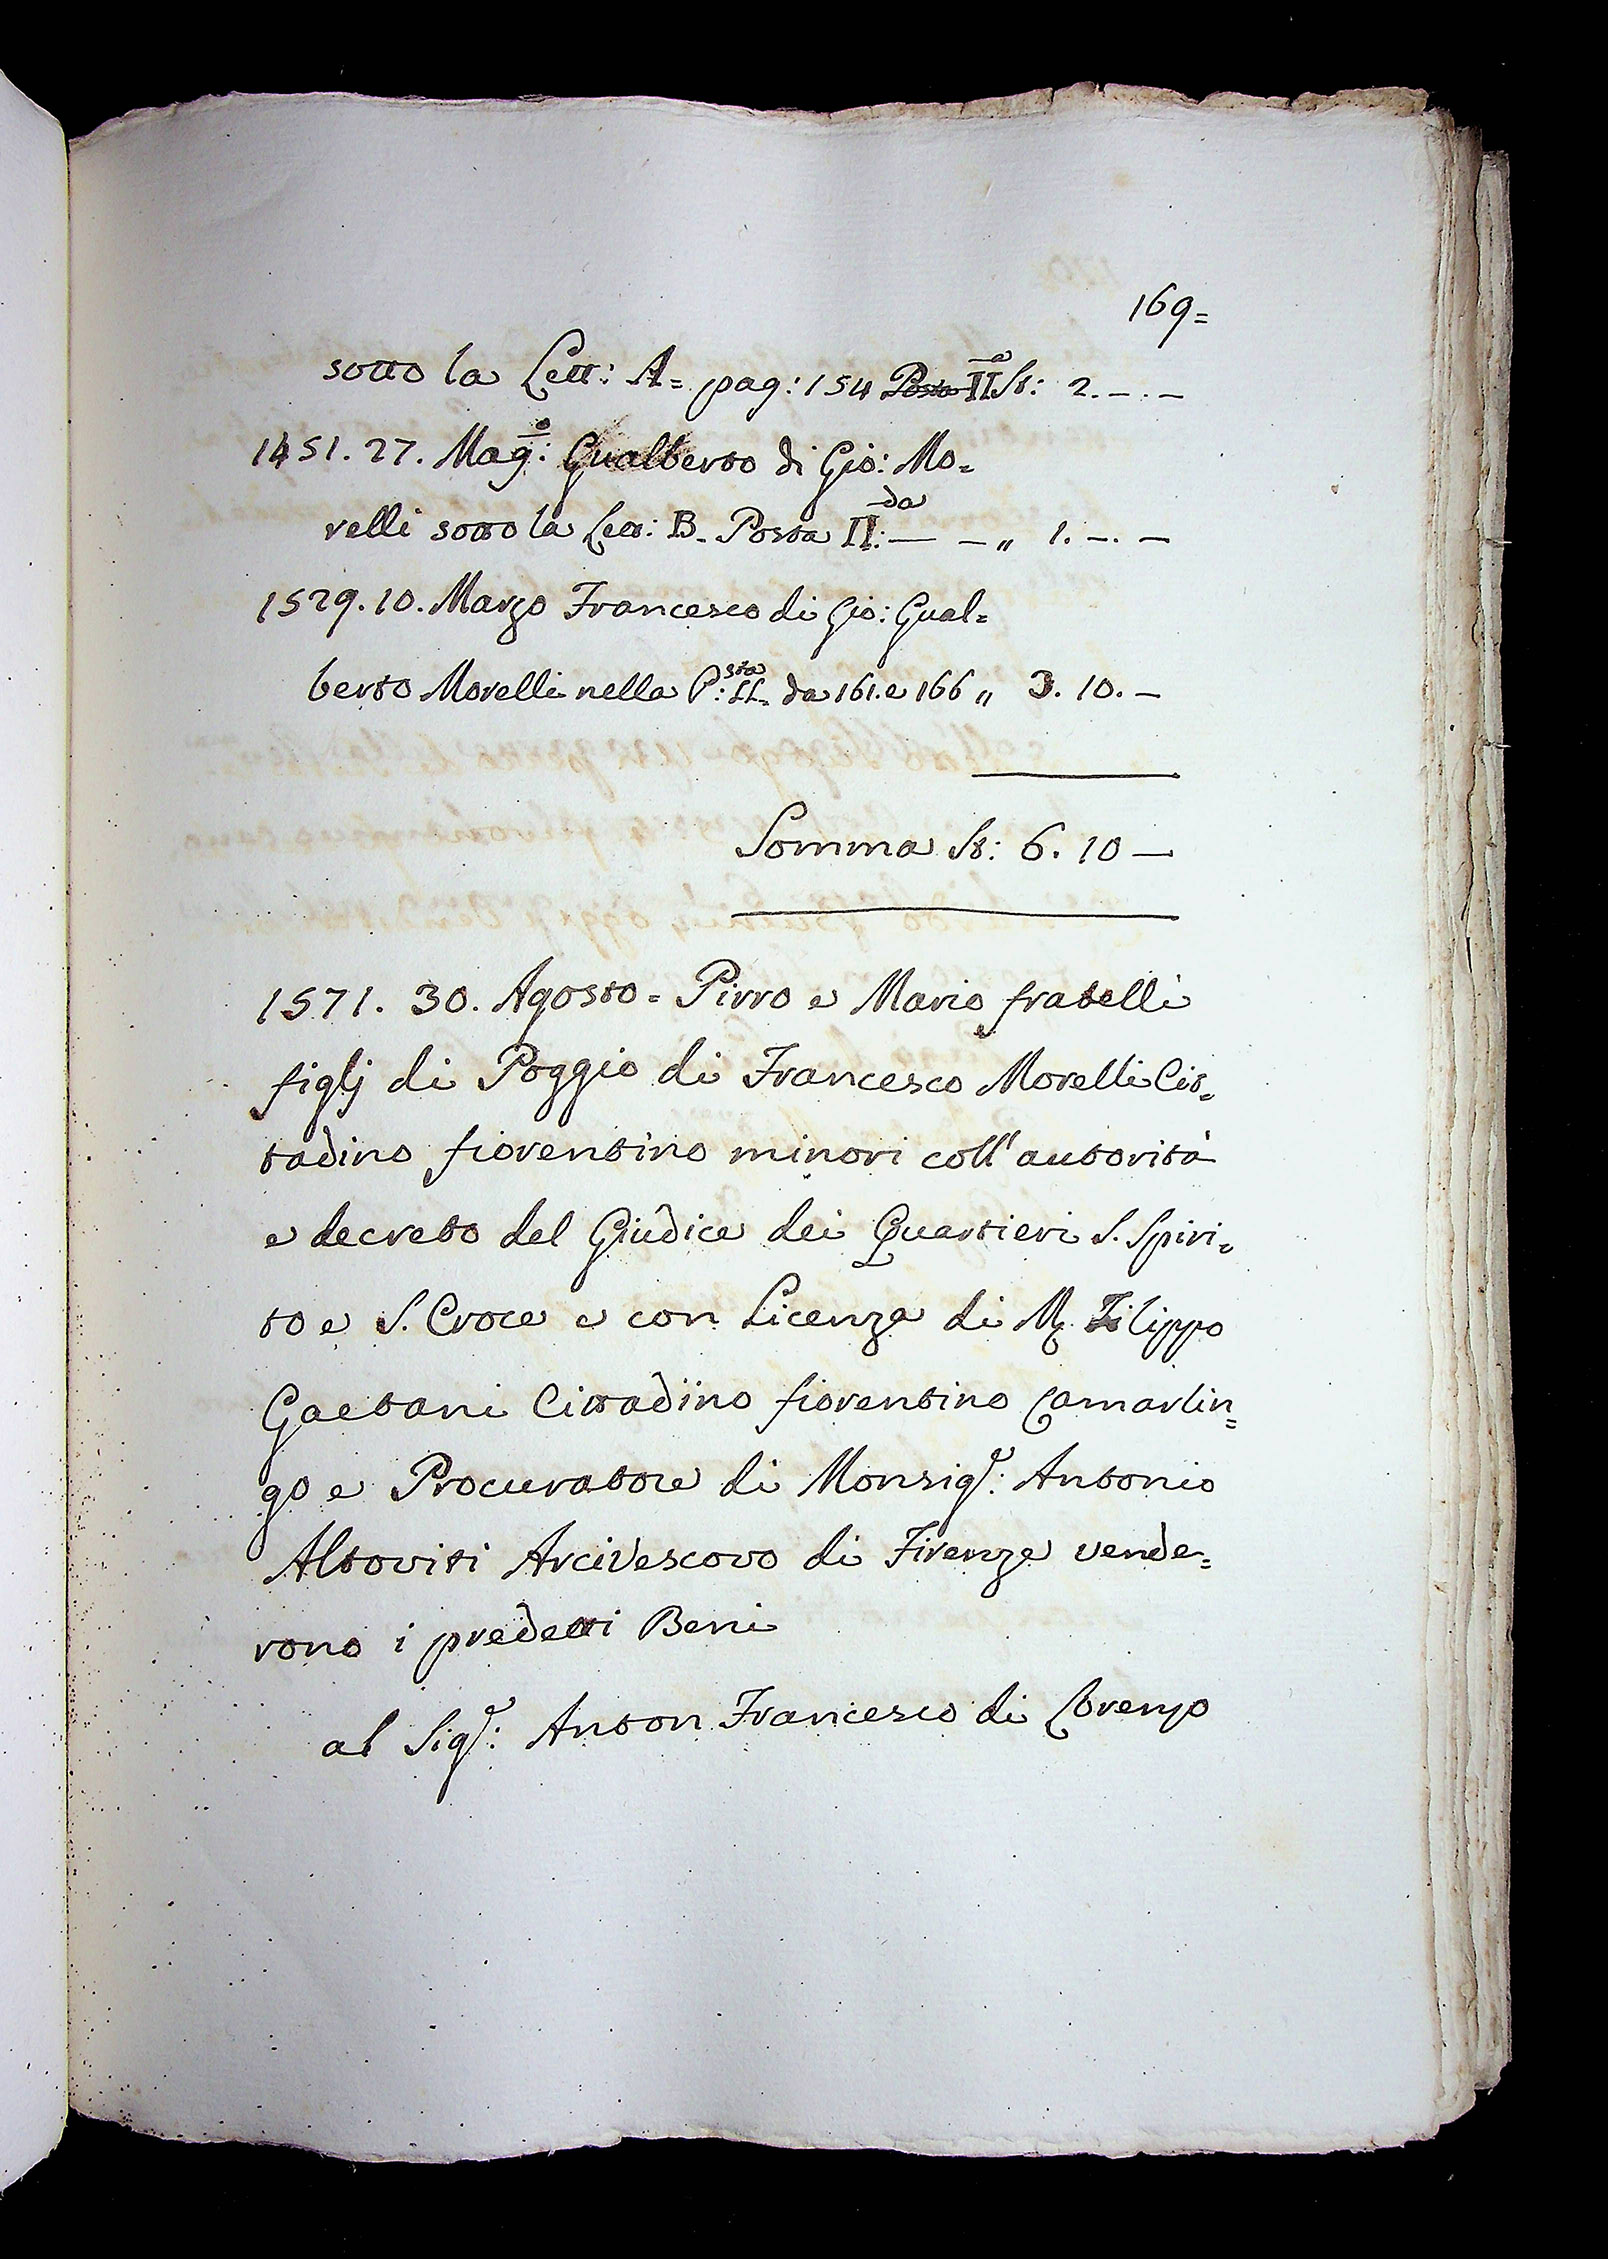 169=
sotto la Lett: A= pag: 154 Posta II.a St: 2. — . —
1451. 27. Mag:o Gualberto di Gio: Mo=
relli sotto la Lett: B. Posta II:da — — „ 1. —. —
1529. 10. Marzo Francesco di Gio: Gual=
berto Morelli nella P:sta II. da 161. e 166 „ 3. 10. —
Somma St: 6. 10 —
1571. 30. Agosto = Pirro e Mario fratelli
figlj di Poggio di Francesco Morelli Cit=
tadino fiorentino minori coll'autorità
e decreto del Giudice dei Quartieri S. Spiri=
to e S. Croce e con Licenza di M. Filippo
Gaetani Cittadino fiorentino Camarlin=
go e Procuratore di Monsig:r Antonio
Altoviti Arcivescovo di Firenze vende=
rono i predetti Beni
al Sig:r Anton Francesco di Lorenzo